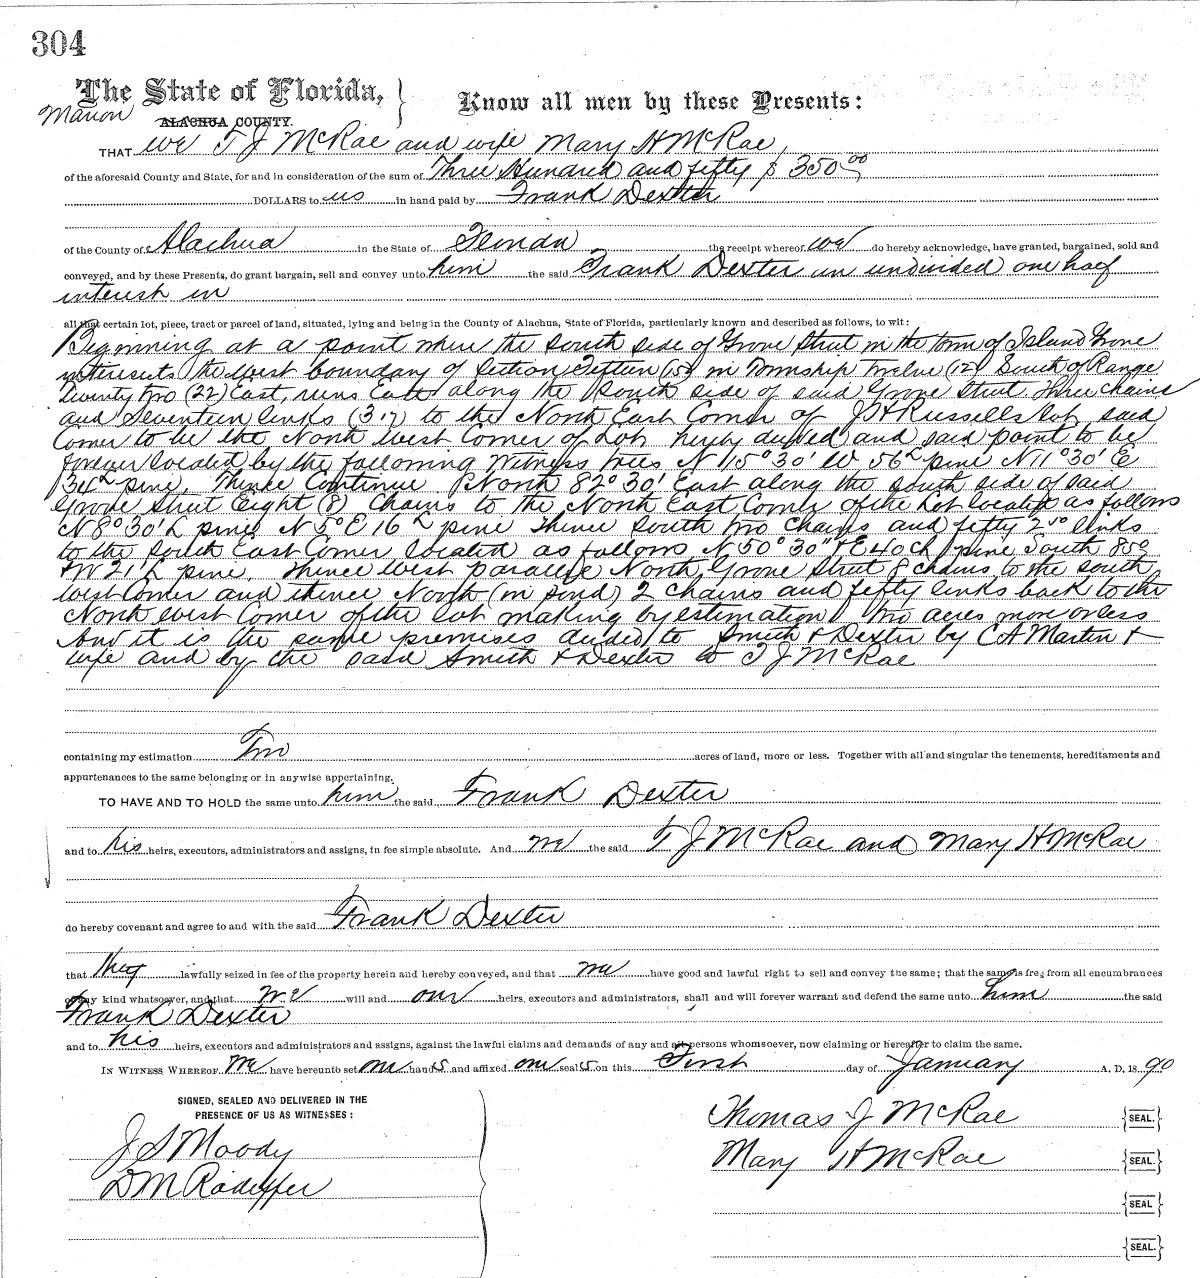 304
The State of Florida, } Know all men by these Presents:
Marion ALACHUA COUNTY.
THAT we T J McRae and wife Mary H McRae,
of the aforesaid County and State, for and in consideration of the sum of Three Hundred and fifty $350.00
DOLLARS to us in hand paid by Frank Dexter
of the County of Alachua in the State of Florida the receipt whereof we do hereby acknowledge, have granted, bargained, sold and
conveyed, and by these Presents, do grant bargain, sell and convey unto him the said Frank Dexter an undivided one half
interest in
all that certain lot, piece, tract or parcel of land, situated, lying and being in the County of Alachua, State of Florida, particularly known and described as follows, to wit:
Beginning at a point where the South side of Grove Street in the town of Island Grove
intersects the West boundary of Section Fifteen (15) in Township Twelve (12) South of Range
Twenty two (22) East, runs East along the South side of said Grove Street Three chains
and Seventeen links (3.17) to the North East Corner of J H Russells lot, said
Corner to be the North West Corner of Lot hereby deeded and said point to be
forever located by the following Witness trees N 15° 30' W 56 L pine N 11° 30' E
34 L pine. Thence Continue North 82° 30' East along the South side of said
Grove Street Eight (8) Chains to the North East Corner of the Lot located as follows
N 8° 30' L pine N 5° E 16 L pine Thence South two Chains and fifty 2.50 links
to the South East Corner located as follows N 50° 30" E 40 ch pine South 85°
W 21 L pine. Thence West parallel North Grove Street 8 chains to the South
West Corner and thence North (in pond) 2 chains and fifty links back to the
North West Corner of the lot making by estimation two acres more or less
And it is the same premises deeded to Smith & Dexter by C A Martin &
wife and by the said Smith & Dexter to T J McRae
containing my estimation Two acres of land, more or less. Together with all and singular the tenements, hereditaments and
appurtenances to the same belonging or in anywise appertaining.
TO HAVE AND TO HOLD the same unto him the said Frank Dexter
and to his heirs, executors, administrators and assigns, in fee simple absolute. And we the said T J McRae and Mary H McRae
do hereby covenant and agree to and with the said Frank Dexter
that they lawfully seized in fee of the property herein and hereby conveyed, and that we have good and lawful right to sell and convey the same; that the same is free from all encumbrances
of any kind whatsoever, and that we will and our heirs, executors and administrators, shall and will forever warrant and defend the same unto him the said
Frank Dexter
and to his heirs, executors and administrators and assigns, against the lawful claims and demands of any and all persons whomsoever, now claiming or hereafter to claim the same.
IN WITNESS WHEREOF We have hereunto set our hands and affixed our seals on this First day of January A, D, 1890
SIGNED, SEALED AND DELIVERED IN THE
PRESENCE OF US AS WITNESSES:
J S Moody
D M Radeffer
Thomas J McRae {SEAL.}
Mary H McRae {SEAL.}
{SEAL}
{SEAL.}